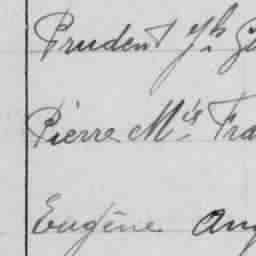 Prudent Jh
Pierre Mie Fra
Eugène Aug